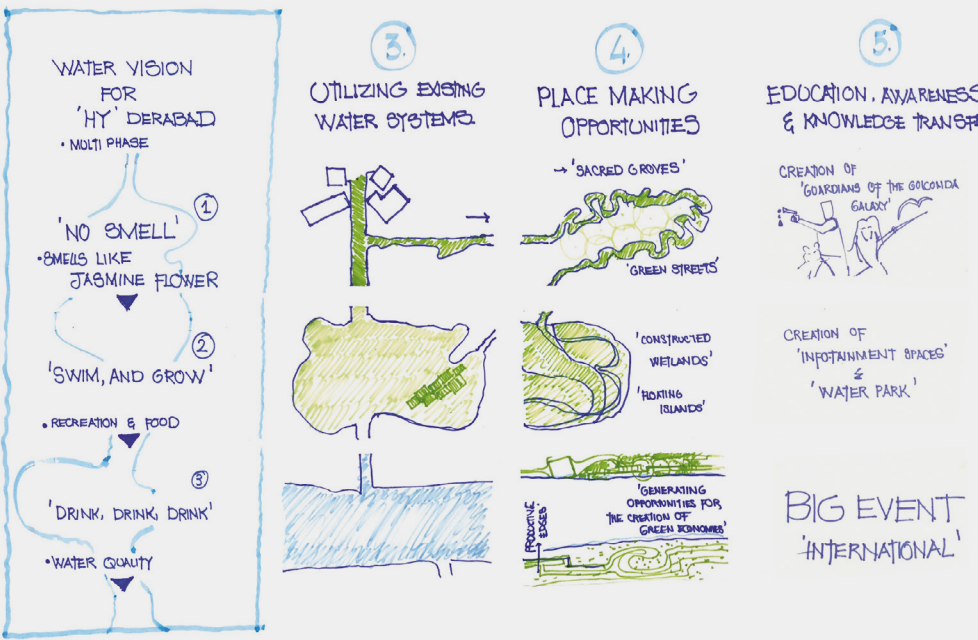 WATER VISION
FOR
'HY' DERABAD
• MULTI PHASE
1
'NO SMELL'
• SMELLS LIKE
JASMINE FLOWER
2
'SWIM, AND GROW'
• RECREATION & FOOD
3
'DRINK, DRINK, DRINK'
• WATER QUALITY
3.
UTILIZING EXISTING
WATER SYSTEMS.
4.
PLACE MAKING
OPPORTUNITIES
→ 'SACRED GROVES'
'GREEN STREETS'
'CONSTRUCTED
WETLANDS'
'FLOATING
ISLANDS'
'GENERATING
OPPORTUNITIES FOR
THE CREATION OF
GREEN ECONOMIES'
PRODUCTIVE
EDGES'
5.
EDUCATION, AWARENESS
& KNOWLEDGE TRANSF
CREATION OF
'GUARDIANS OF THE GOLCONDA
GALAXY'
CREATION OF
'INFOTAINMENT SPACES'
&
'WATER PARK'
BIG EVENT
'INTERNATIONAL'